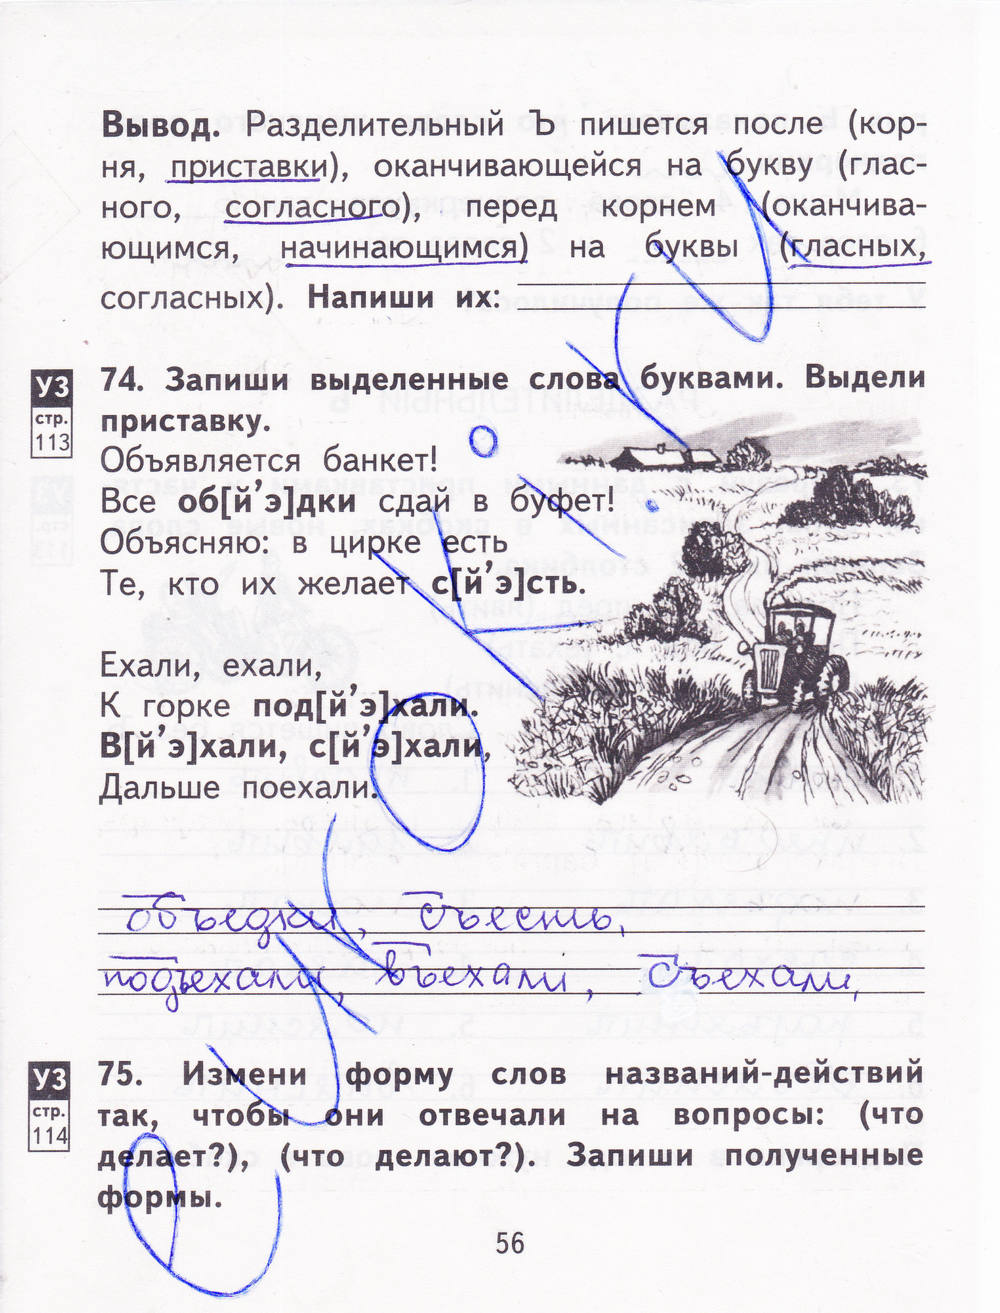 Вывод. Разделительный Ъ пишется после (кор-
ня, приставки), оканчивающейся на букву (глас-
ного, согласного), перед корнем (оканчива-
ющимся, начинающимся) на буквы (гласных,
согласных). Напиши их:
УЗ
стр.
113
74. Запиши выделенные слова буквами. Выдели
приставку.
Объявляется банкет!
Все об[й’э]дки сдай в буфет!
Объясняю: в цирке есть
Те, кто их желает с[й’э]сть.
Ехали, ехали,
К горке под[й’э]хали.
В[й’э]хали, с[й’э]хали,
Дальше поехали.
объедки, съесть,
подъехали, въехали, съехали,
УЗ
стр.
114
75. Измени форму слов названий-действий
так, чтобы они отвечали на вопросы: (что
делает?), (что делают?) Запиши полученные
формы.
56